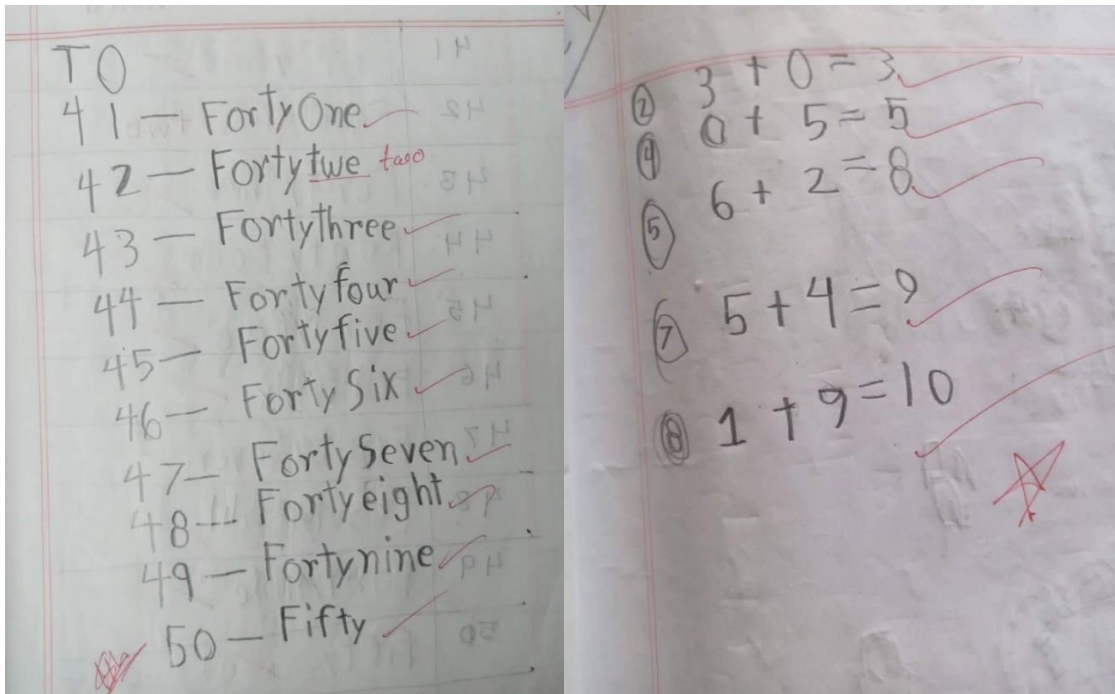 T O
41 – Forty One
42 – Forty twe two
43 – Forty three
44 – Forty four
45 – Forty five
46 – Forty Six
47 – Forty Seven
48 – Forty eight
49 – Forty nine
50 – Fifty
② 3 + 0 = 3
④ 0 + 5 = 5
⑤ 6 + 2 = 8
⑦ 5 + 4 = 9
⑧ 1 + 9 = 10